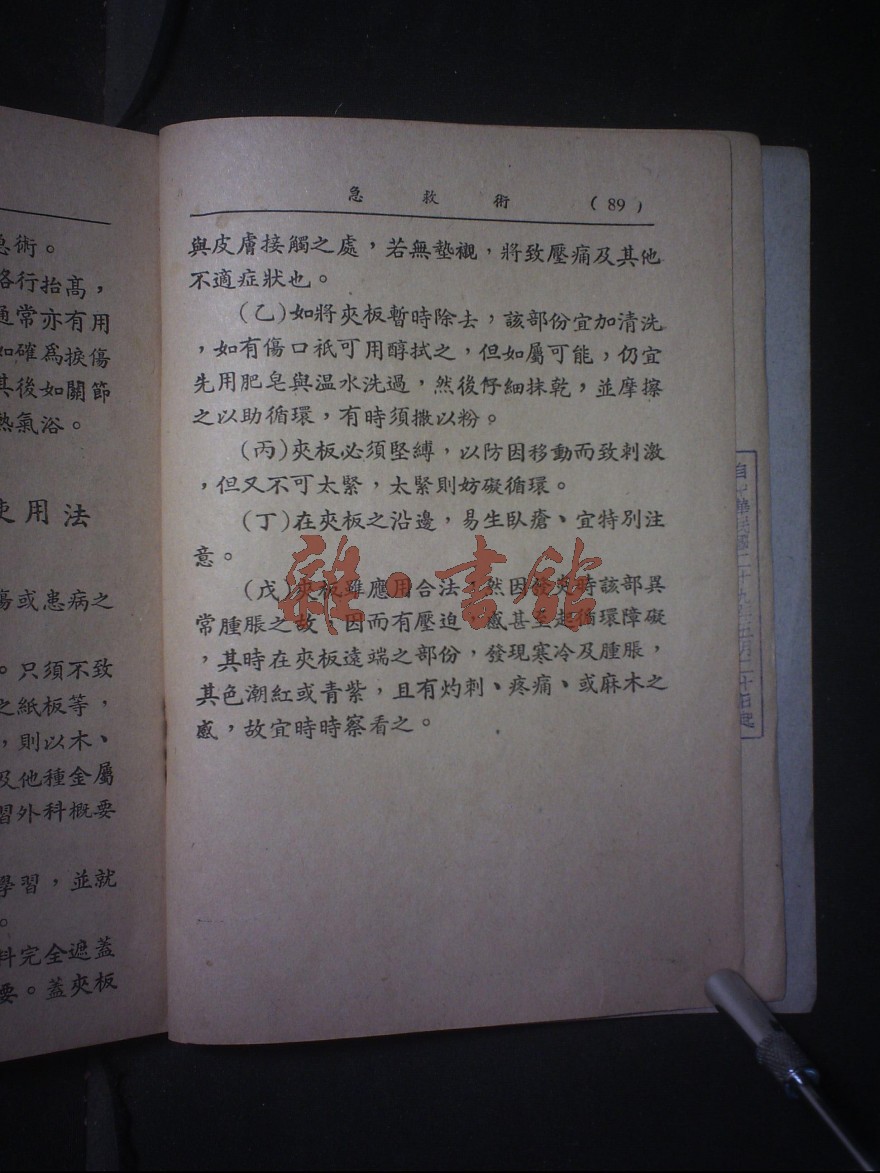 急救術 (89)
與皮膚接觸之處，若無墊襯，將致壓痛及其他
不適症狀也。
(乙)如將夾板暫時除去，該部份宜加清洗
，如有傷口祇可用醇拭之，但如屬可能，仍宜
先用肥皂與温水洗過，然後仔細抹乾，並摩擦
之以助循環，有時須撒以粉。
(丙)夾板必須堅縛，以防因移動而致刺激
，但又不可太緊，太緊則妨礙循環。
(丁)在夾板之沿邊，易生臥瘡、宜特別注
意。
(戊)夾板雖應用合法，然因發炎時該部異
常腫脹之故，因而有壓迫，感甚至起循環障礙
，其時在夾板遠端之部份，發現寒冷及腫脹，
其色潮紅或青紫，且有灼刺、疼痛、或麻木之
感，故宜時時察看之。
雜·書館
急術。
格行抬高，
通常亦有用
如確爲捩傷
其後如關節
熱氣浴。
使用法
傷或患病之
。只須不致
之紙板等，
，則以木、
及他種金屬
習外科概要
學習，並就
。
料完全遮蓋
要。蓋夾板